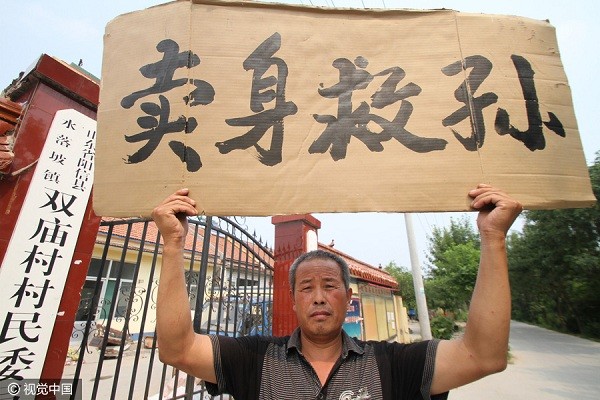 卖身救孙
山东省阳信县
水落坡镇
双庙村村民委
© 视觉中国